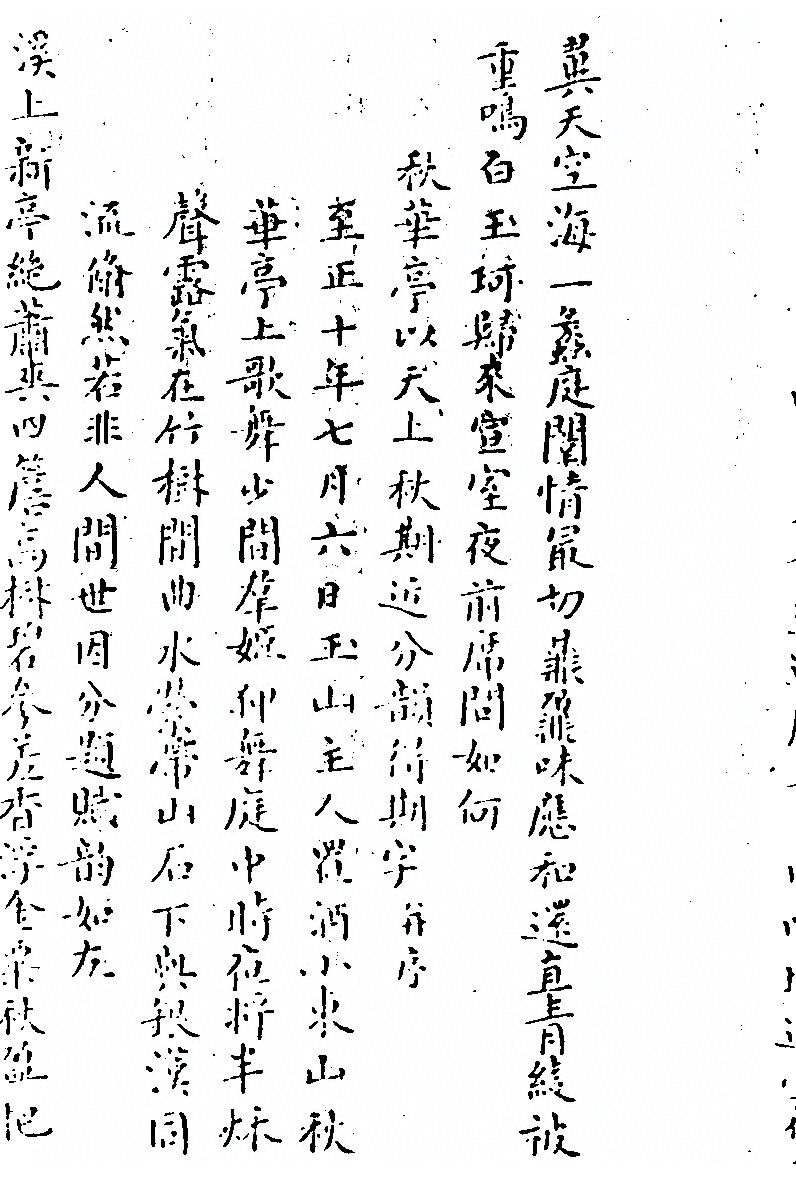 異天空海一蠡庭闈情最切鼎鼐味應和還直青綾被
重鳴白玉珂歸來宣室夜前席問如何
秋華亭以天上秋期近分韻得期字 并序
至正十年七月六日玉山主人置酒小東山秋
華亭上歌舞少間羣姬狎舞庭中時夜將半秌
聲露氣在竹樹間曲水縈帶山石下與銀漢同
流翛然若非人間世因分題賦韻如左
溪上新亭絶蕭爽四簷高樹碧參差杏浮金粟秋盈把